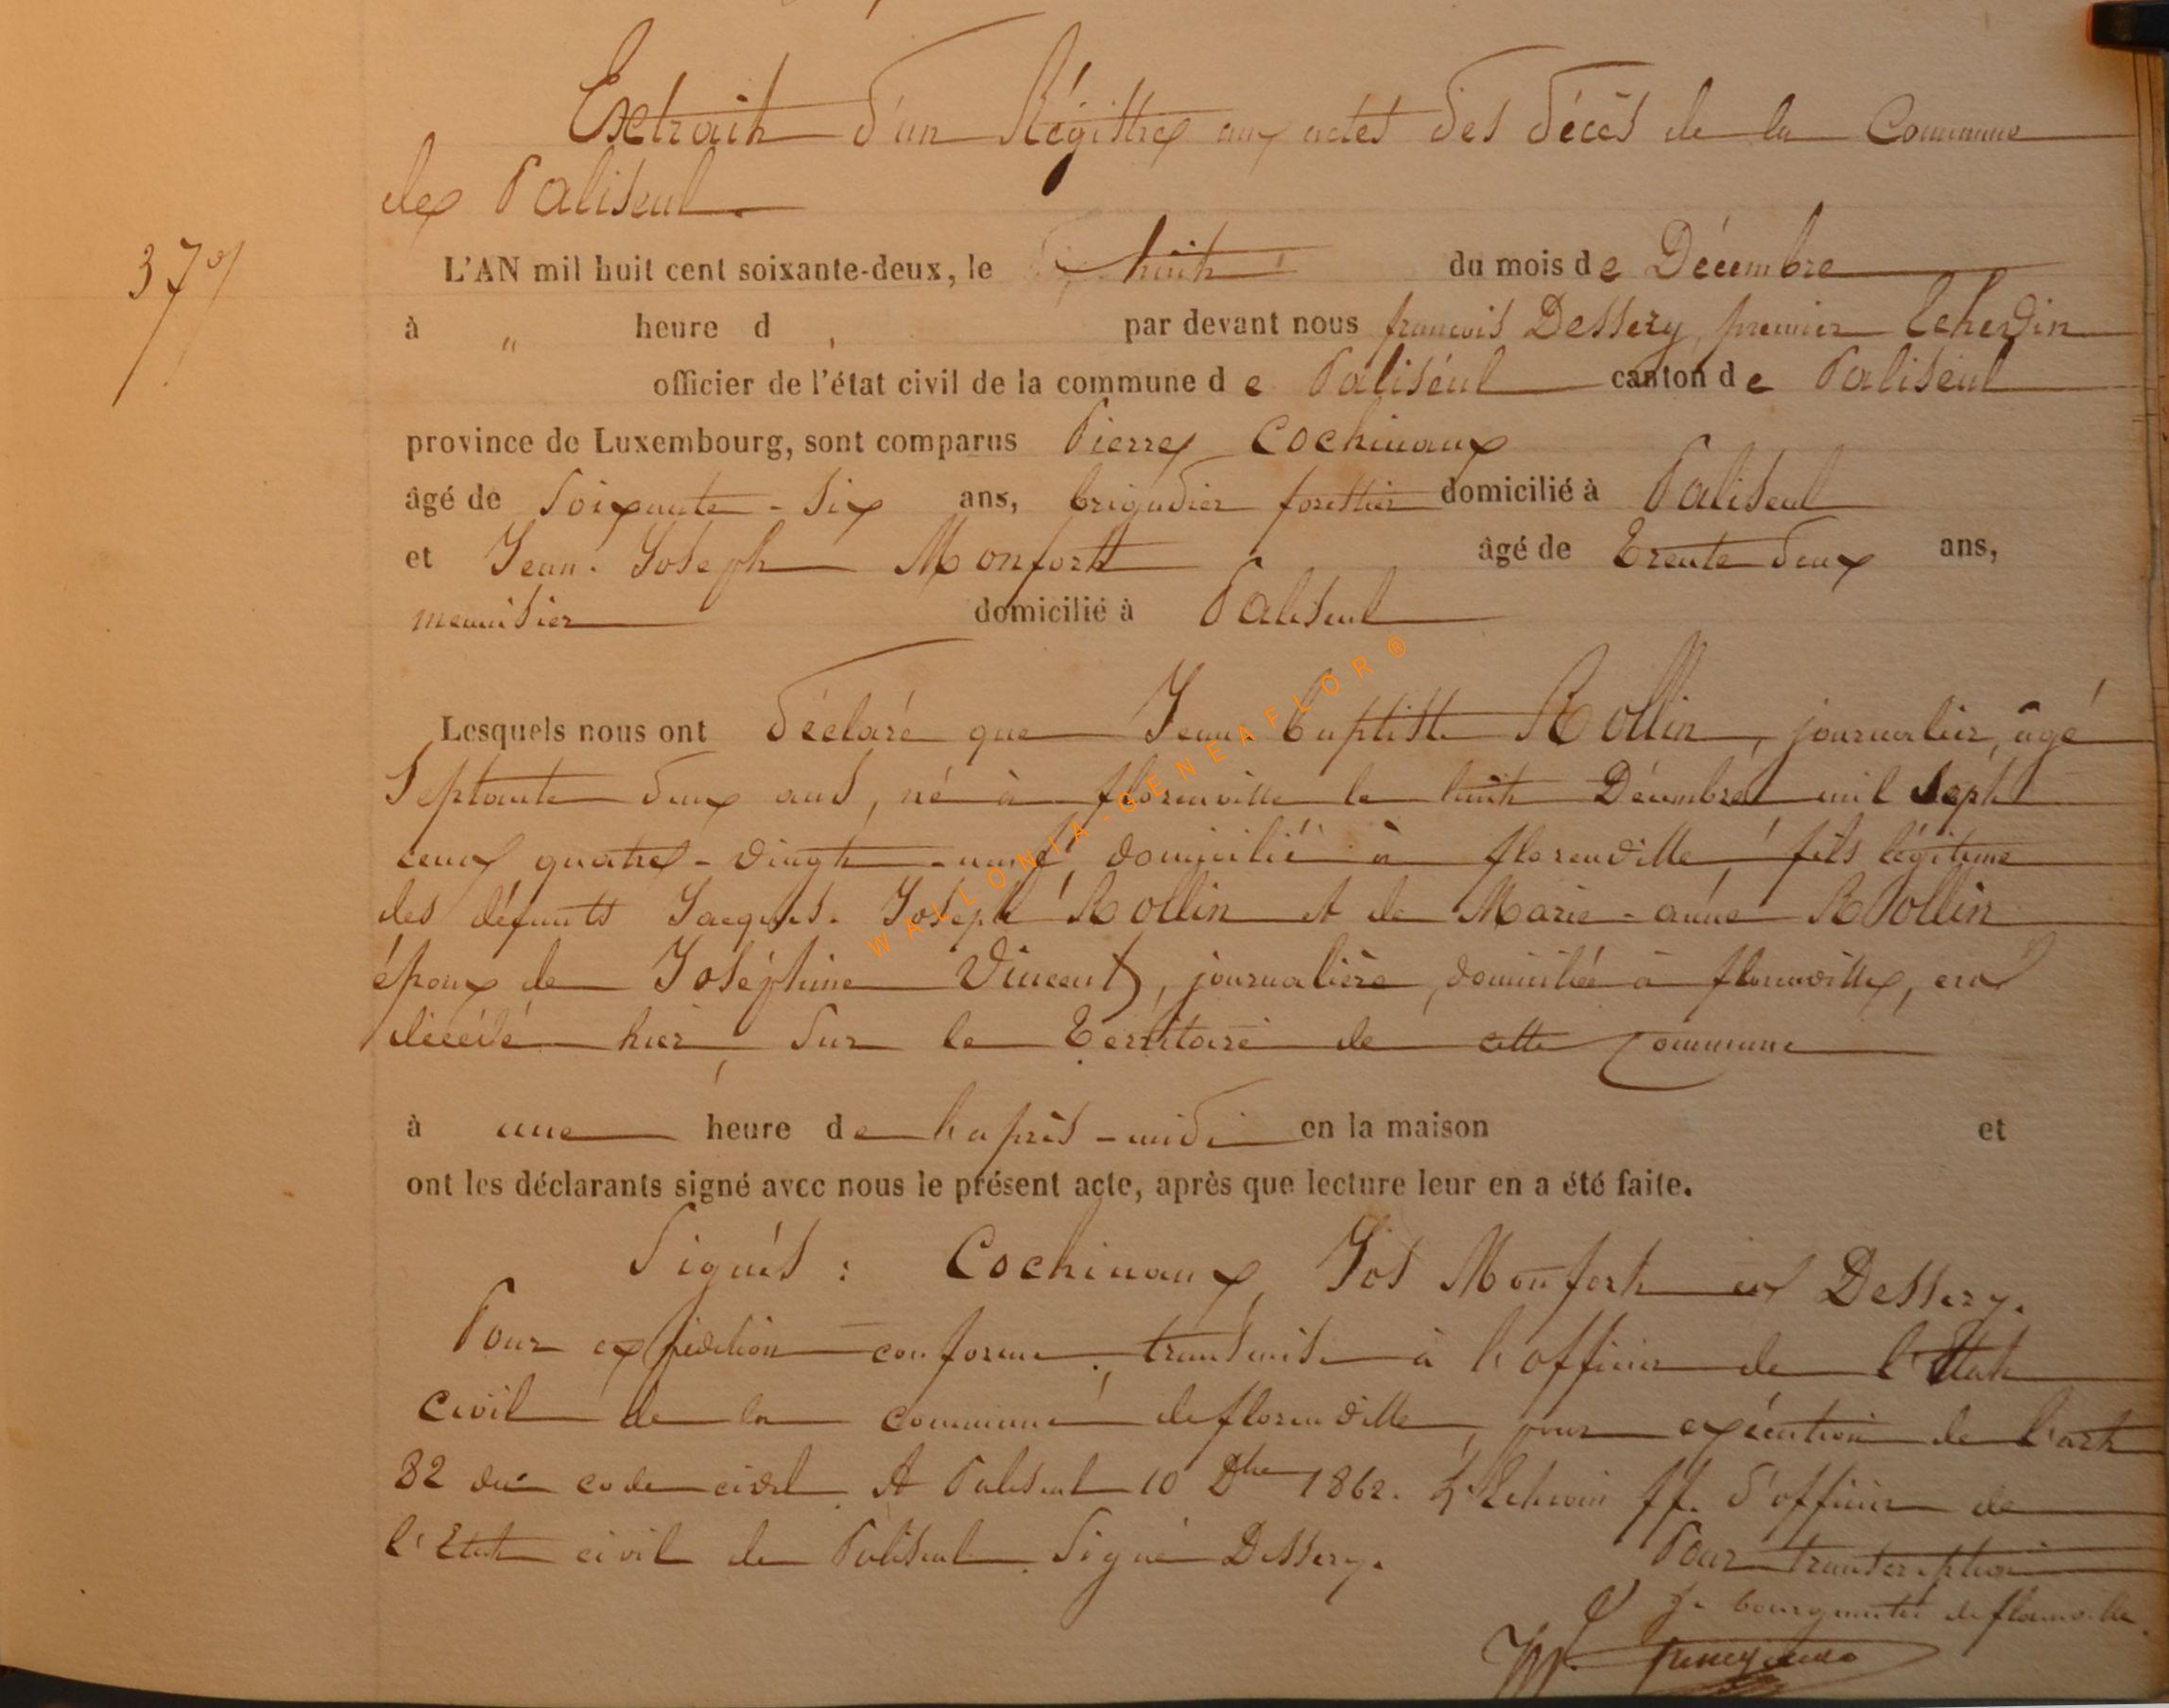 Extrait d'un Régistre aux actes des décès de la Commune
de Paliseul.
37
L'AN mil huit cent soixante-deux, le huit du mois de Décembre
à " heure d , par devant nous françois Dessery, premier Echevin
officier de l'état civil de la commune de Paliseul canton de Paliseul
province de Luxembourg, sont comparus Pierre Cochinaux
âgé de Soixante-six ans, brigadier forestier domicilié à Paliseul
et Jean-Joseph Monfort âgé de Trente deux ans,
menuisier domicilié à Paliseul
Lesquels nous ont déclaré que Jean-Baptiste Rollin, journalier, âgé
Septante deux ans, né à florenville le huit Décembre mil Sept
cent quatre-vingt-neuf, domicilié à florenville, fils légitime
des défunts Jacques-Joseph Rollin et de Marie-anne Rollin
époux de Joséphine Vincent, journalière, domiciliée à florenville, est
décédé hier, Sur le Territoire de cette Commune
à une heure de l'après-midi en la maison et
ont les déclarants signé avec nous le présent acte, après que lecture leur en a été faite.
Signés : Cochinaux, Jos Monfort et Dessery.
Pour expédition conforme, transmise à l'officier de l'Etat
Civil de la commune de florenville, pour exécution de l'art
82 du code civil. A Paliseul 10 Xbre 1862. L'Echevin ff. d'officier de
l'Etat civil de Paliseul. Signé Dessery.
Pour transcription
Le bourgmestre de florenville.
WALLONIA-GENEAFLOR®